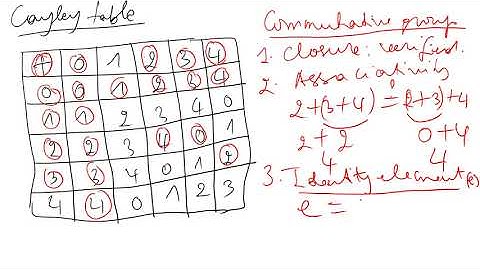 Cayley table
+ 0 1 2 3 4
0 0 1 2 3 4
1 1 2 3 4 0
2 2 3 4 0 1
3 3 4 0 1 2
4 4 0 1 2 3
Commutative group
1. Closure: verified.
2. Associativity
2+(3+4) ?= (2+3)+4
2+2 0+4
4 4
3. Identity element (e)
e =